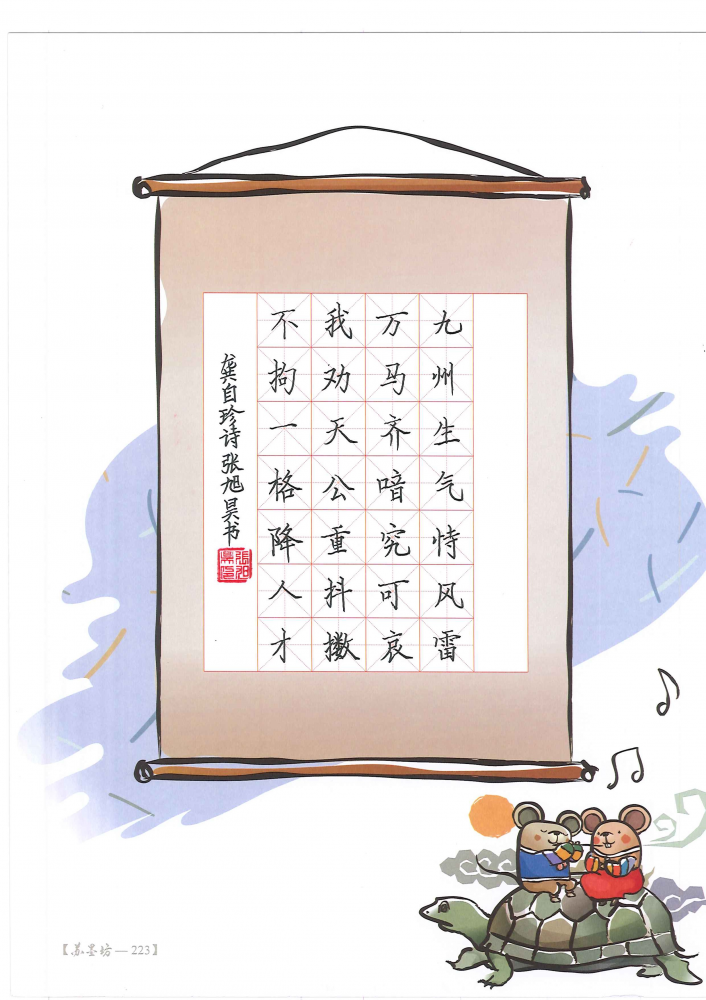 九州生气恃风雷
万马齐喑究可哀
我劝天公重抖擞
不拘一格降人才
龚自珍诗 张旭昊书
【苏墨坊 — 223】